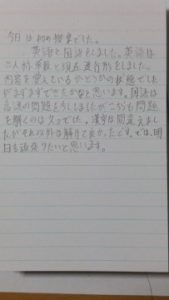 今日は初の授業でした。
英語と国語をしました。英語は
三人称単数と現在進行形をしました。
内容を覚えているかどうかの状態でした
がまずまずできたかなと思います。国語は
の問題をしましたがこちらも問題
を解くのは でした。漢字は間違えまし
たがそれ以外は解けて良かったです。では、明
日も頑張りたいと思います。